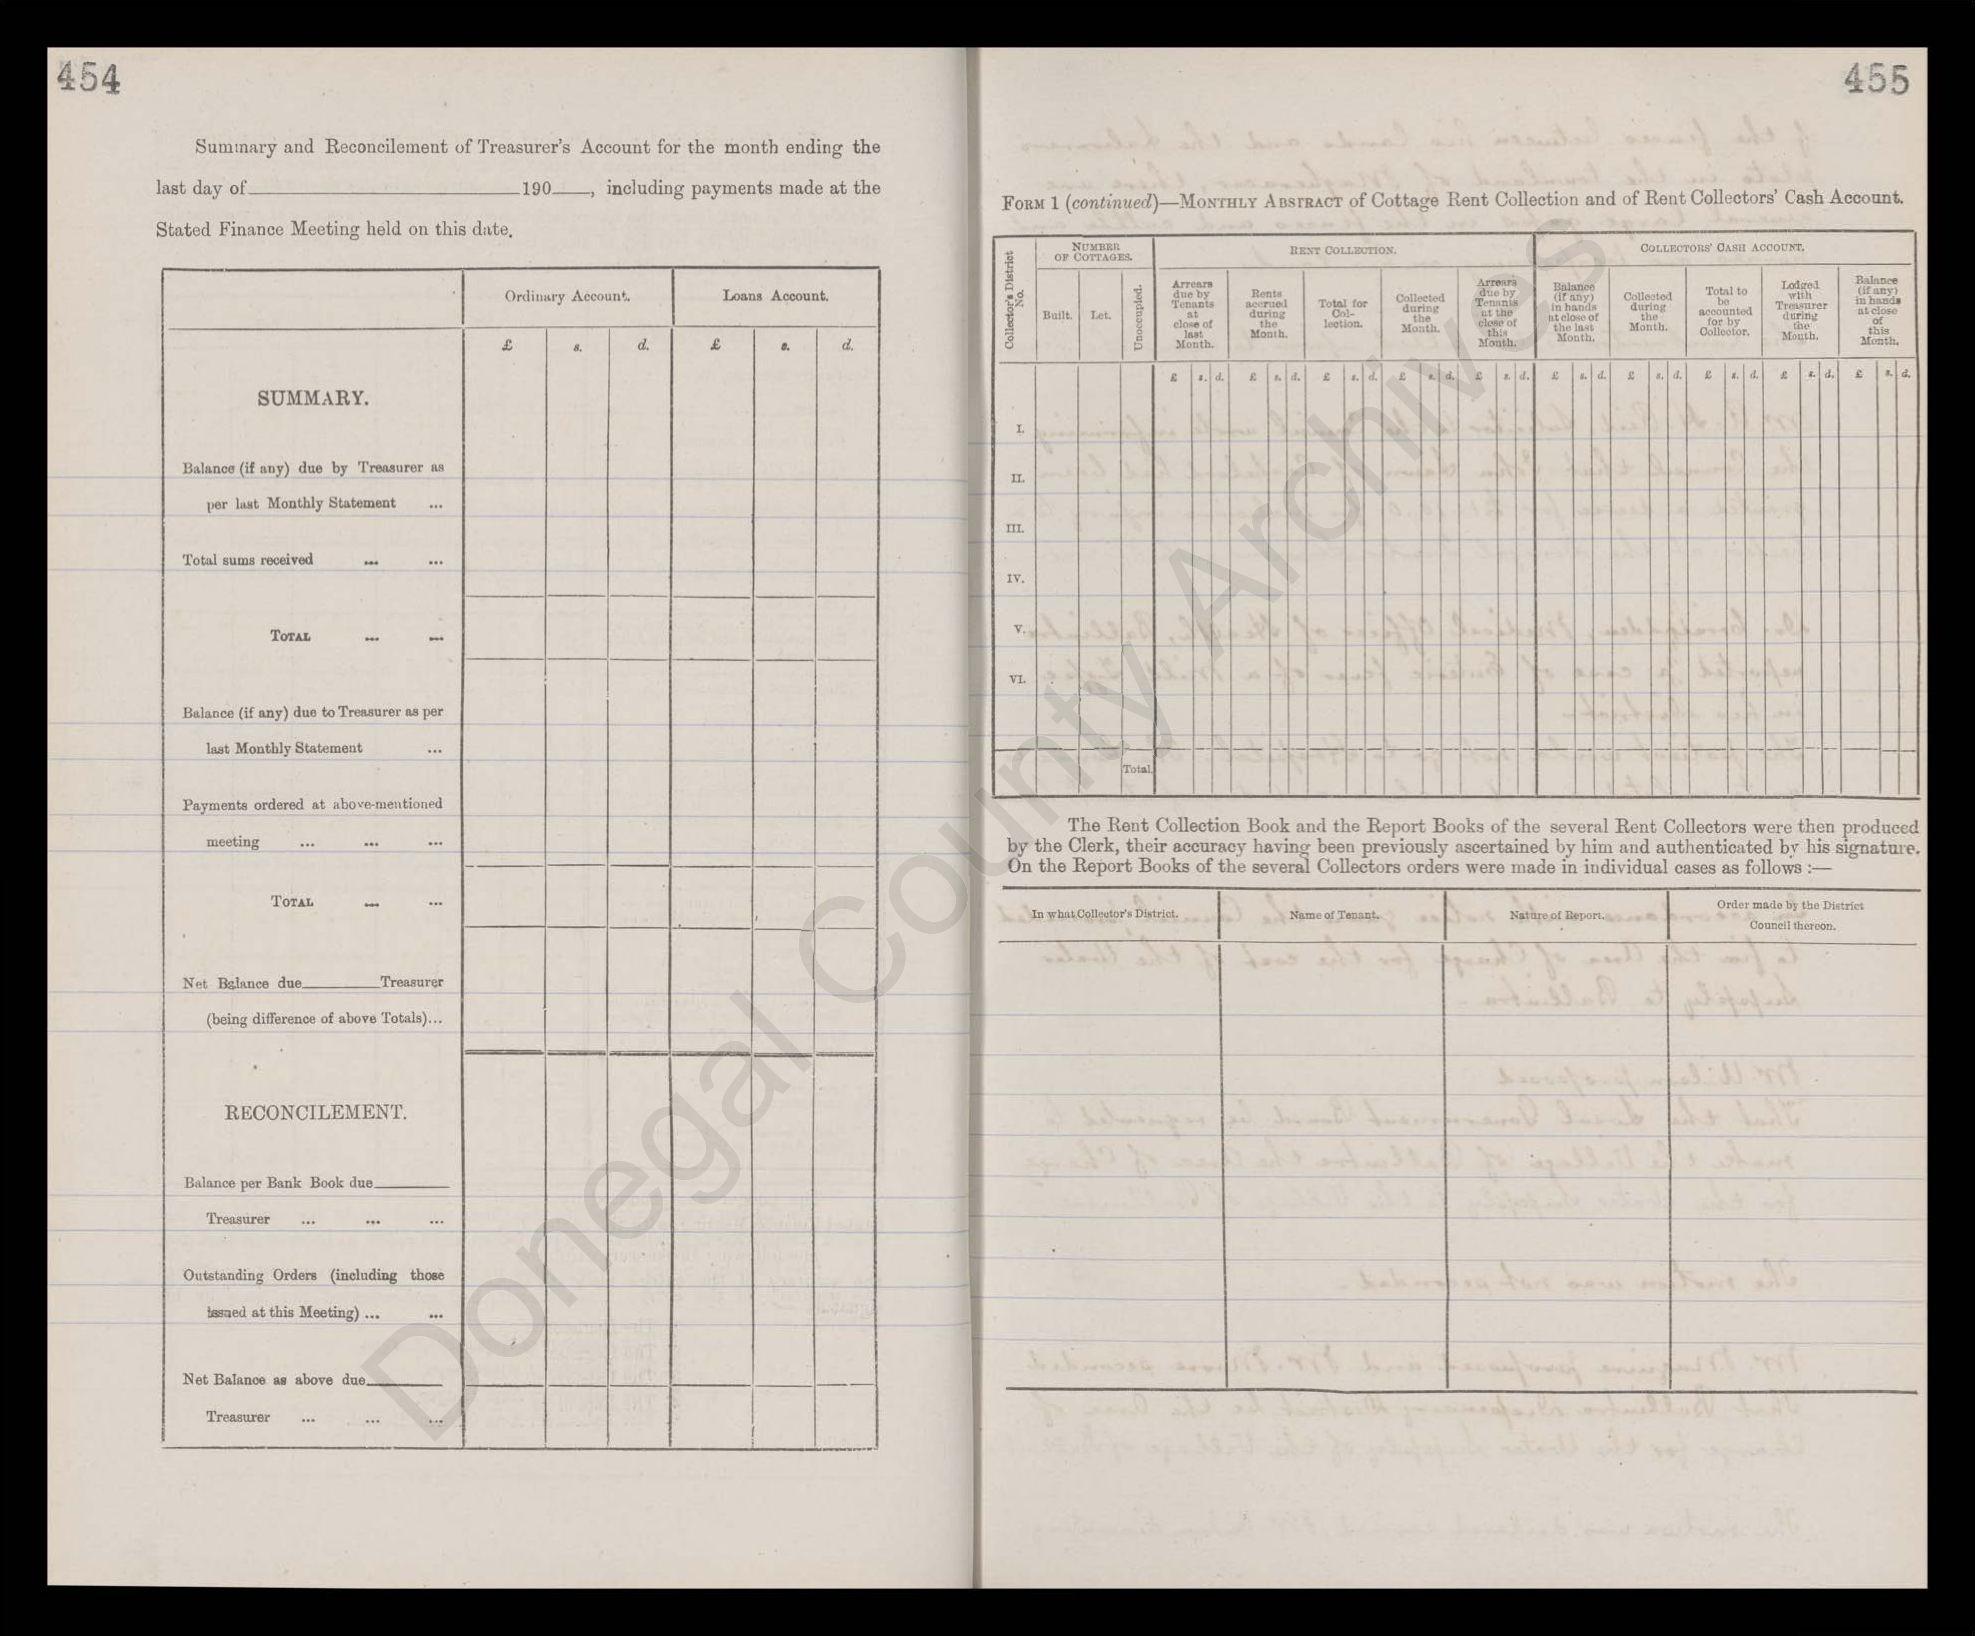 454
Summary and Reconcilement of Treasurer's Account for the month ending the
last day of 190 , including payments made at the
Stated Finance Meeting held on this date.
Ordinary Account. Loans Account.
£ s. d. £ s. d.
SUMMARY.
Balance (if any) due by Treasurer as
per last Monthly Statement ...
Total sums received ... ...
TOTAL ... ...
Balance (if any) due to Treasurer as per
last Monthly Statement ...
Payments ordered at above-mentioned
meeting ... ... ...
TOTAL ... ...
Net Balance due Treasurer
(being difference of above Totals)...
RECONCILEMENT.
Balance per Bank Book due
Treasurer ... ... ...
Outstanding Orders (including those
issued at this Meeting) ... ...
Net Balance as above due
Treasurer ... ... ...
455
FORM 1 (continued)—MONTHLY ABSTRACT of Cottage Rent Collection and of Rent Collectors' Cash Account.
Collector's District No.
NUMBER OF COTTAGES.
RENT COLLECTION.
COLLECTORS' CASH ACCOUNT.
Built.
Let.
Unoccupied.
Arrears due by Tenants at close of last Month.
Rents accrued during the Month.
Total for Collection.
Collected during the Month.
Arrears due by Tenants at the close of this Month.
Balance (if any) in hands at close of the last Month.
Collected during the Month.
Total to be accounted for by Collector.
Lodged with Treasurer during the Month.
Balance (if any) in hands at close of this Month.
£ s. d. £ s. d. £ s. d. £ s. d. £ s. d. £ s. d. £ s. d. £ s. d. £ s. d. £ s. d.
I.
II.
III.
IV.
V.
VI.
Total.
The Rent Collection Book and the Report Books of the several Rent Collectors were then produced
by the Clerk, their accuracy having been previously ascertained by him and authenticated by his signature.
On the Report Books of the several Collectors orders were made in individual cases as follows :—
In what Collector's District. Name of Tenant. Nature of Report. Order made by the District
Council thereon.
Donegal County Archives